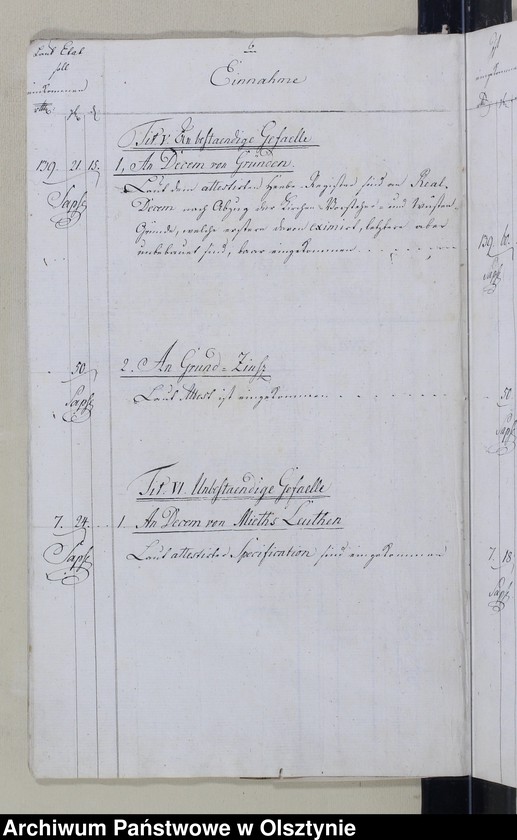 6
Laut Etat
soll
einkommen
Einnahme
Tit. V. Unbestaendige Gefaelle
139. 21. 15.
1, An Decem von Gründen
Laut dem attestirten Huben-Register sind an Real-
Decem nach Abzug der Kirchen-Vorsteher- und Wüsten-
Gründe, welche erstere davon eximirt, letztere aber
unbebaut sind, baar eingekommen
139 60.
50.
2. An Grund-Zinß
Laut Attest ist eingekommen
50
Tit. VI. Unbestaendige Gefaelle
7. 24.
1. An Decem von Mieths Leuthen
Laut attestirter Specification sind eingekommen
7 18
Archiwum Państwowe w Olsztynie